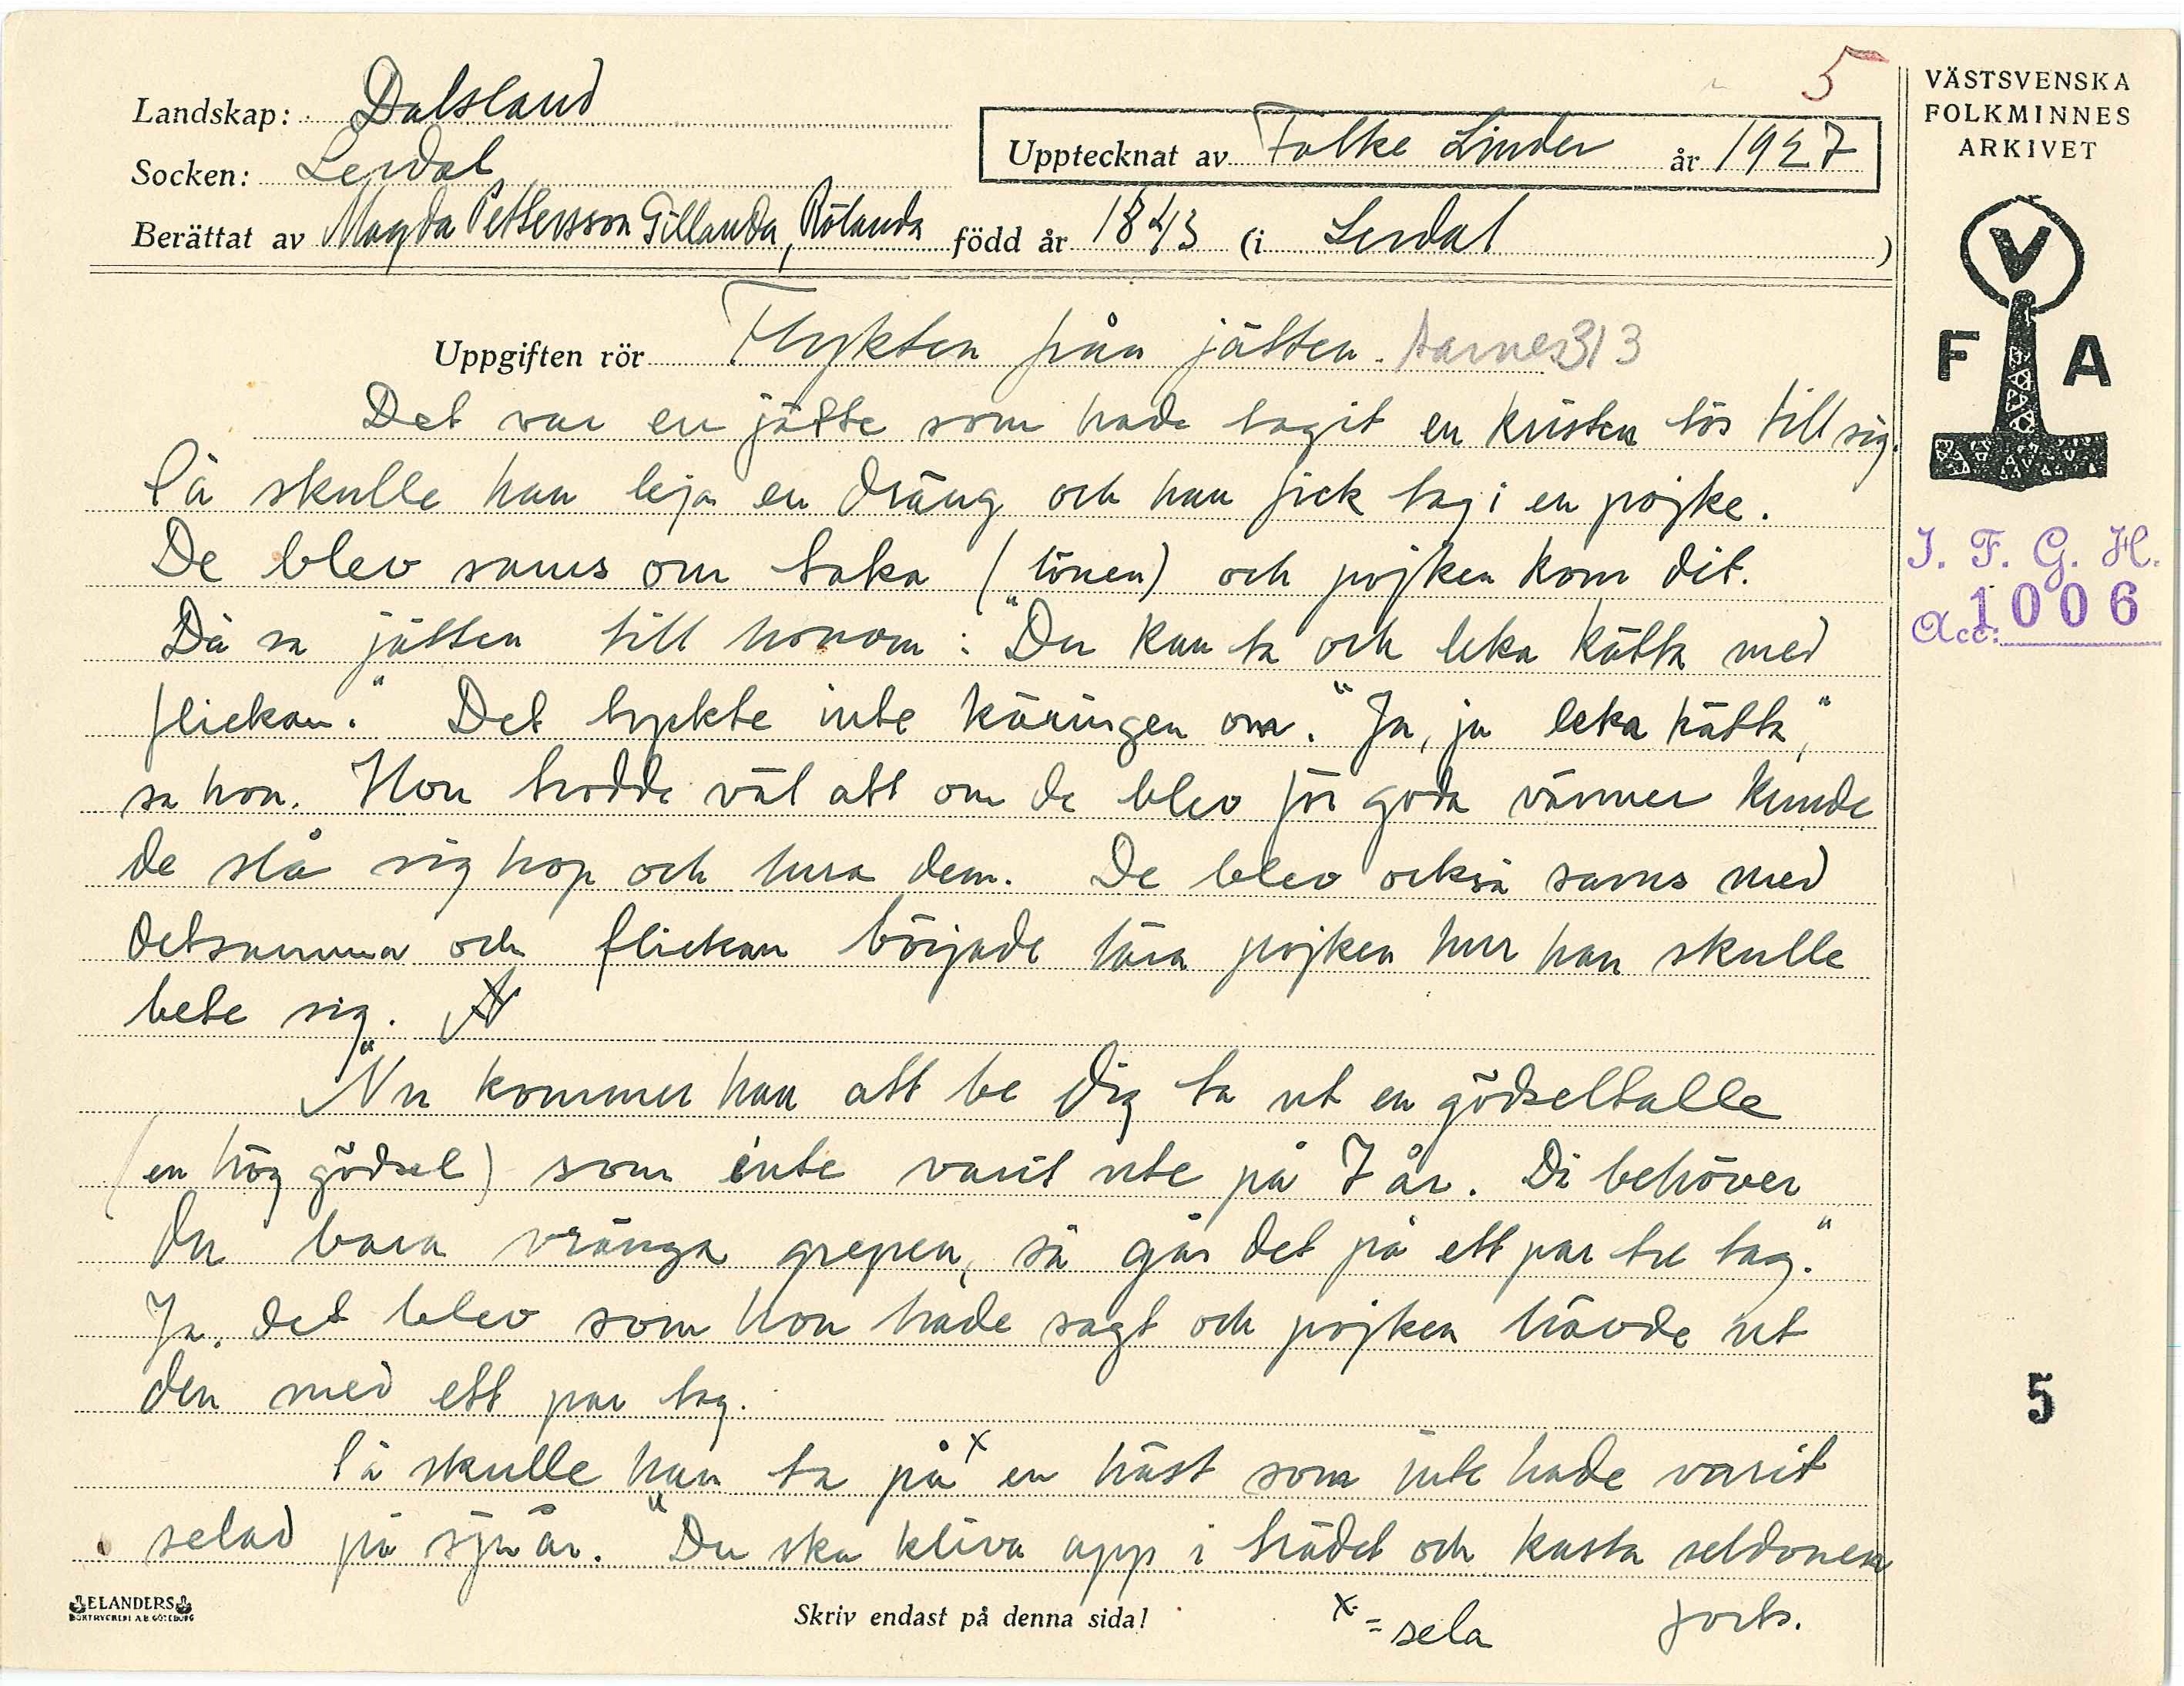 5
VÄSTSVENSKA
FOLKMINNES
ARKIVET
Landskap: Dalsland
Upptecknat av Folke Linder år 1927
Socken: Lerdal
Berättat av Magda Pettersson Tillanda, Rölanda född år 1843 (i Lerdal)
V
F A
Uppgiften rör Flykten från jätten. Aarnes 313
Det var en jätte som hade tagit en kristen tös till sig.
Så skulle han leja en dräng och han fick tag i en pojke.
De blev sams om taka (lönen) och pojken kom dit.
Då sa jätten till honom: "Du kan ta och leka kätta med
flickan." Det tyckte inte käringen om. "Ja, ja leka kätta,"
sa hon. Hon trodde väl att om de blev för goda vänner kunde
de slå sig hop och lura dem. De blev också sams med
detsamma och flickan började lära pojken hur han skulle
bete sig.
"Nu kommer han att be dig ta ut en gödseltalle
(en hög gödsel) som inte varit ute på 7 år. Då behöver
du bara vränga grepen, så går det på ett par tre tag."
Ja, det blev som hon hade sagt och pojken hävde ut
den med ett par tag.
Så skulle han ta på x en häst som inte hade varit
selad på sju år. "Du ska kliva upp i trädet och kasta seldonen
I. F. G. H.
Acc: 1006
5
ELANDERS
BOKTRYCKERI A.B. GÖTEBORG
Skriv endast på denna sida!
x = sela
forts.